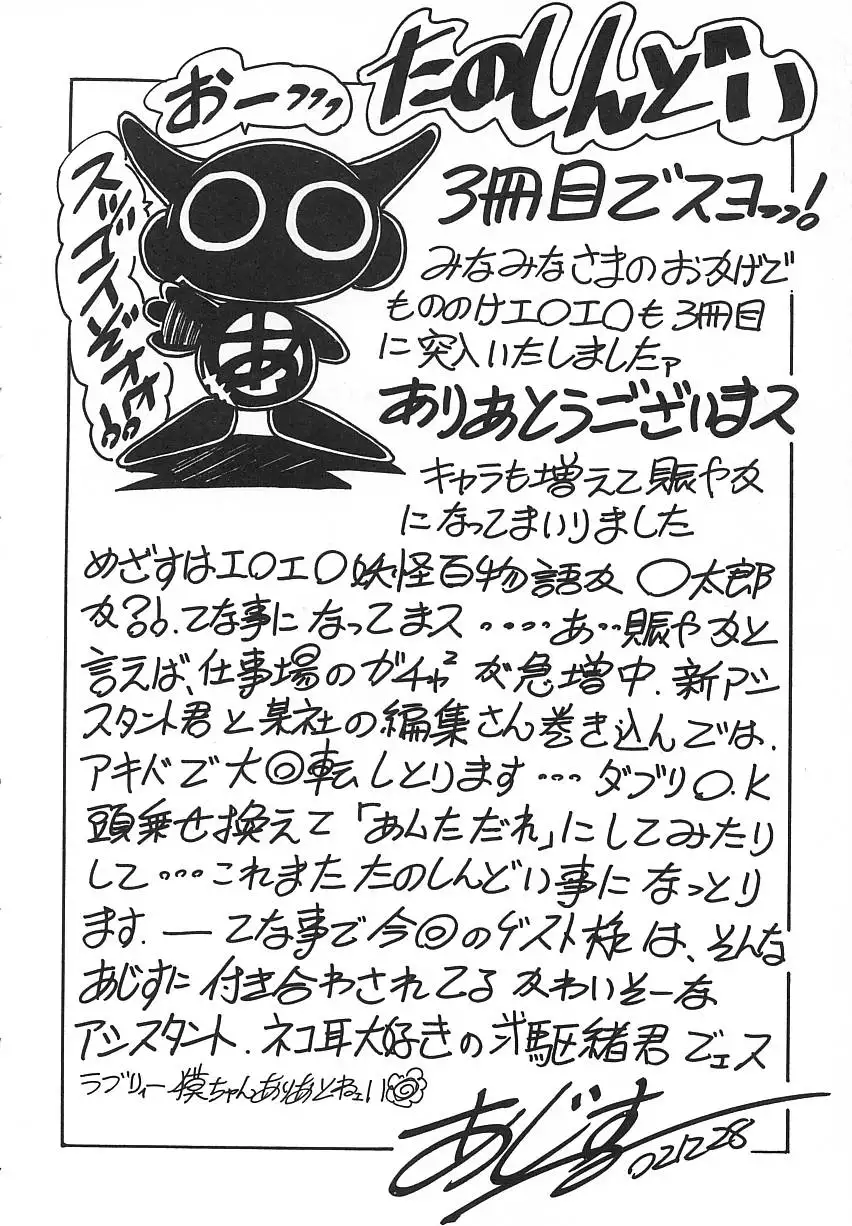 たのしんどい
おーっっっ
スッゴイぞオオ!!
3冊目でスヨっっ!
みなみなさまのおかげで
もののけエ○エ○も3冊目
に突入いたしましたァ
ありあとうございまス
キャラも増えて賑やか
になってまいりました
めざすはエ○エ○妖怪百物語か ○太郎
か?!.てな事になってまス・・・・あ…賑やかと
言えば、仕事場のガチャ² が急増中.新アシ
スタント君と某社の編集さん巻き込んでは.
アキバで大◎転しとります…ダブリO.K
頭乗せ換えて「あんただれ」にしてみたり
して…これまたたのしんどい事になっとり
ます.―てな事で今◎のゲスト様は、そんな
あじすに付き合わされてる かわいそーな
アシスタント.ネコ耳大好きの 駆緒君でェス
ラブリィー 漠ちゃんありあとねェい
あじす 02.12.28
あ